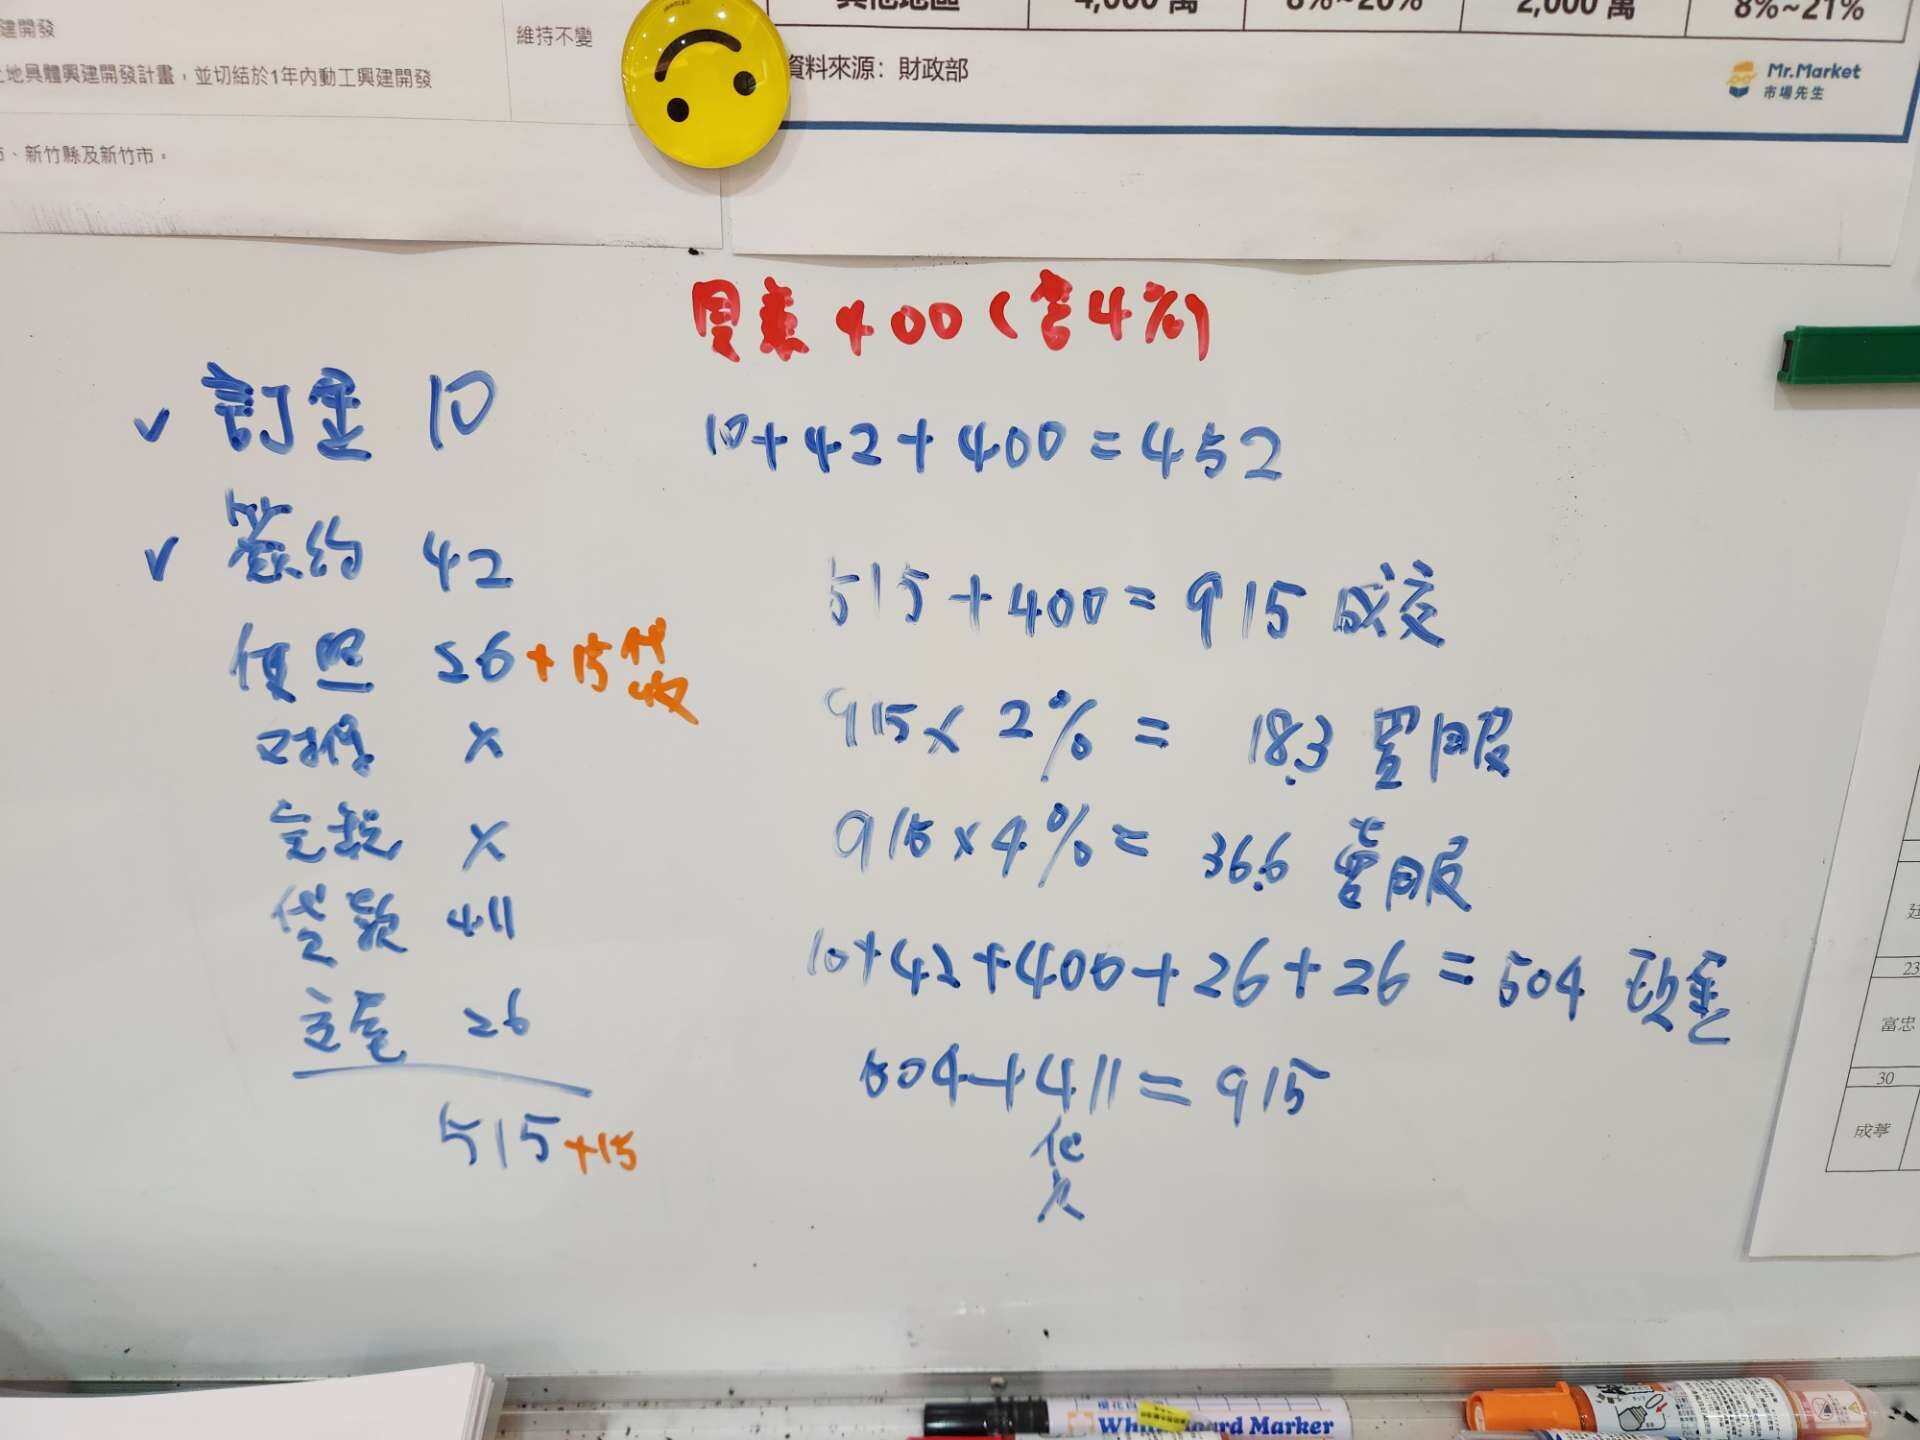 建開發
土地具體興建開發計畫，並切結於1年內動工興建開發
維持不變
、新竹縣及新竹市。
其他地區 4,000 萬 8%~20% 2,000 萬 8%~21%
資料來源：財政部
Mr.Market
市場先生
400（含4%）
✓ 訂金 10
✓ 簽約 42
使照 26+15代收
對保 X
完稅 X
貸款 411
交屋 26
515+15
10+42+400=452
515+400=915 成交
915×2%= 18.3 買服
915×4%= 36.6 賣服
10+42+400+26+26=504 現金
504+411=915
貸
23
富忠
30
成葶
White Board Marker